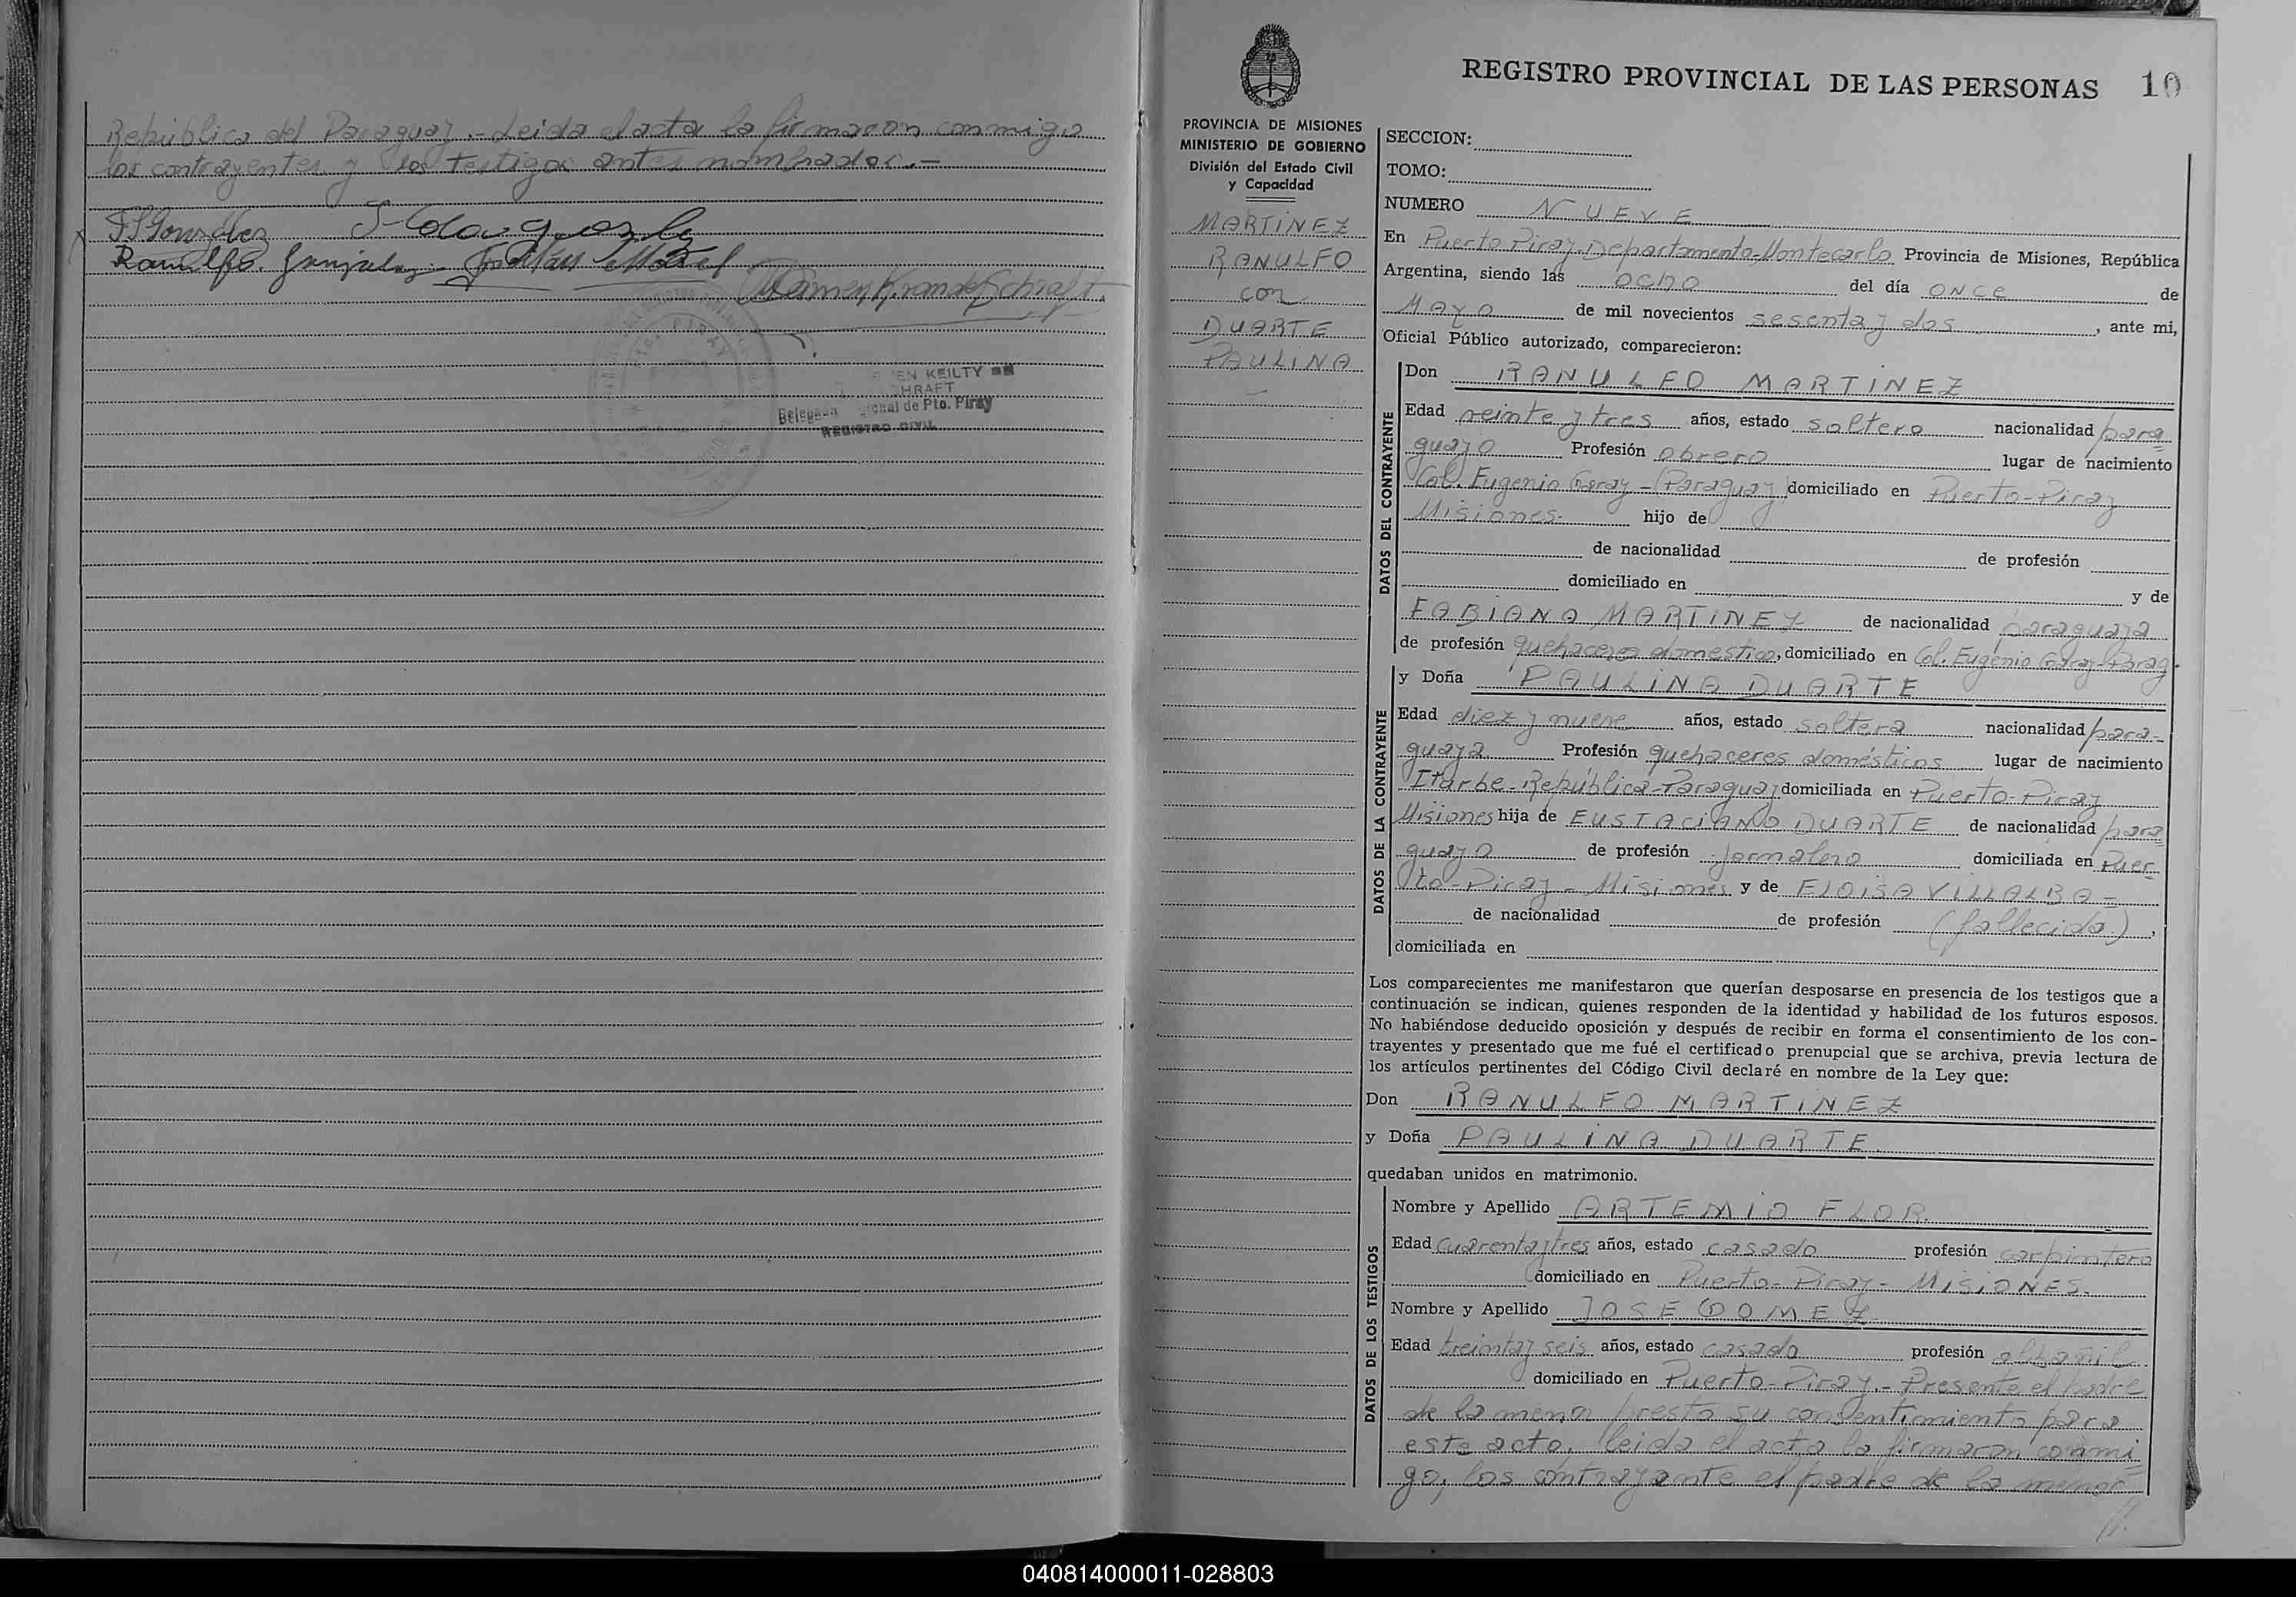 República del Paraguay.- Leida el acta la firmaron conmigo
los contrayentes y los testigos antes nombrados.-
FSGonzález
Ranulfo. Gonzalez.
KEILTY
HRAFT
Delegada de Pto. Piray
REGISTRO CIVIL
REGISTRO PROVINCIAL DE LAS PERSONAS 10
PROVINCIA DE MISIONES
MINISTERIO DE GOBIERNO
División del Estado Civil
y Capacidad
MARTINEZ
RANULFO
con
DUARTE
PAULINA
SECCION:
TOMO:
NUMERO NUEVE
En Puerto Piray-Departamento-Montecarlo Provincia de Misiones, República
Argentina, siendo las ocho del día once de
Mayo de mil novecientos sesenta y dos, ante mi,
Oficial Público autorizado, comparecieron:
DATOS DEL CONTRAYENTE
Don RANULFO MARTINEZ
Edad veinte y tres años, estado soltero nacionalidad para=
guayo Profesión obrero lugar de nacimiento
Col. Eugenio Garay-(Paraguay) domiciliado en Puerto-Piray
Misiones. hijo de
de nacionalidad de profesión
domiciliado en y de
FABIANA MARTINEZ de nacionalidad paraguaya
de profesión quehaceres domestico, domiciliado en Col. Eugenio Garay-Parag.
DATOS DE LA CONTRAYENTE
y Doña PAULINA DUARTE
Edad diez y nueve años, estado soltera nacionalidad para-
guaya Profesión quehaceres domésticos lugar de nacimiento
Iturbe-República-Paraguay domiciliada en Puerto-Piray
Misiones hija de EUSTACIANO DUARTE de nacionalidad para=
guayo de profesión jornalero domiciliada en Puer=
to-Piray-Misiones y de ELOISA VILLALBA-
de nacionalidad de profesión (fallecida),
domiciliada en
Los comparecientes me manifestaron que querían desposarse en presencia de los testigos que a
continuación se indican, quienes responden de la identidad y habilidad de los futuros esposos.
No habiéndose deducido oposición y después de recibir en forma el consentimiento de los con-
trayentes y presentado que me fué el certificado prenupcial que se archiva, previa lectura de
los artículos pertinentes del Código Civil declaré en nombre de la Ley que:
Don RANULFO MARTINEZ
y Doña PAULINA DUARTE.
quedaban unidos en matrimonio.
DATOS DE LOS TESTIGOS
Nombre y Apellido ARTEMIO FLOR.
Edad cuarenta y tres años, estado casado profesión carpintero
domiciliado en Puerto-Piray-MISIONES.
Nombre y Apellido JOSE GOMEZ
Edad treinta y seis años, estado casado profesión albañil
domiciliado en Puerto-Piray.-Presente el padre
de la menor presto su consentimiento para
este acto. leida el acta la firmaron conmi=
go, los contrayente el padre de la menor
040814000011-028803